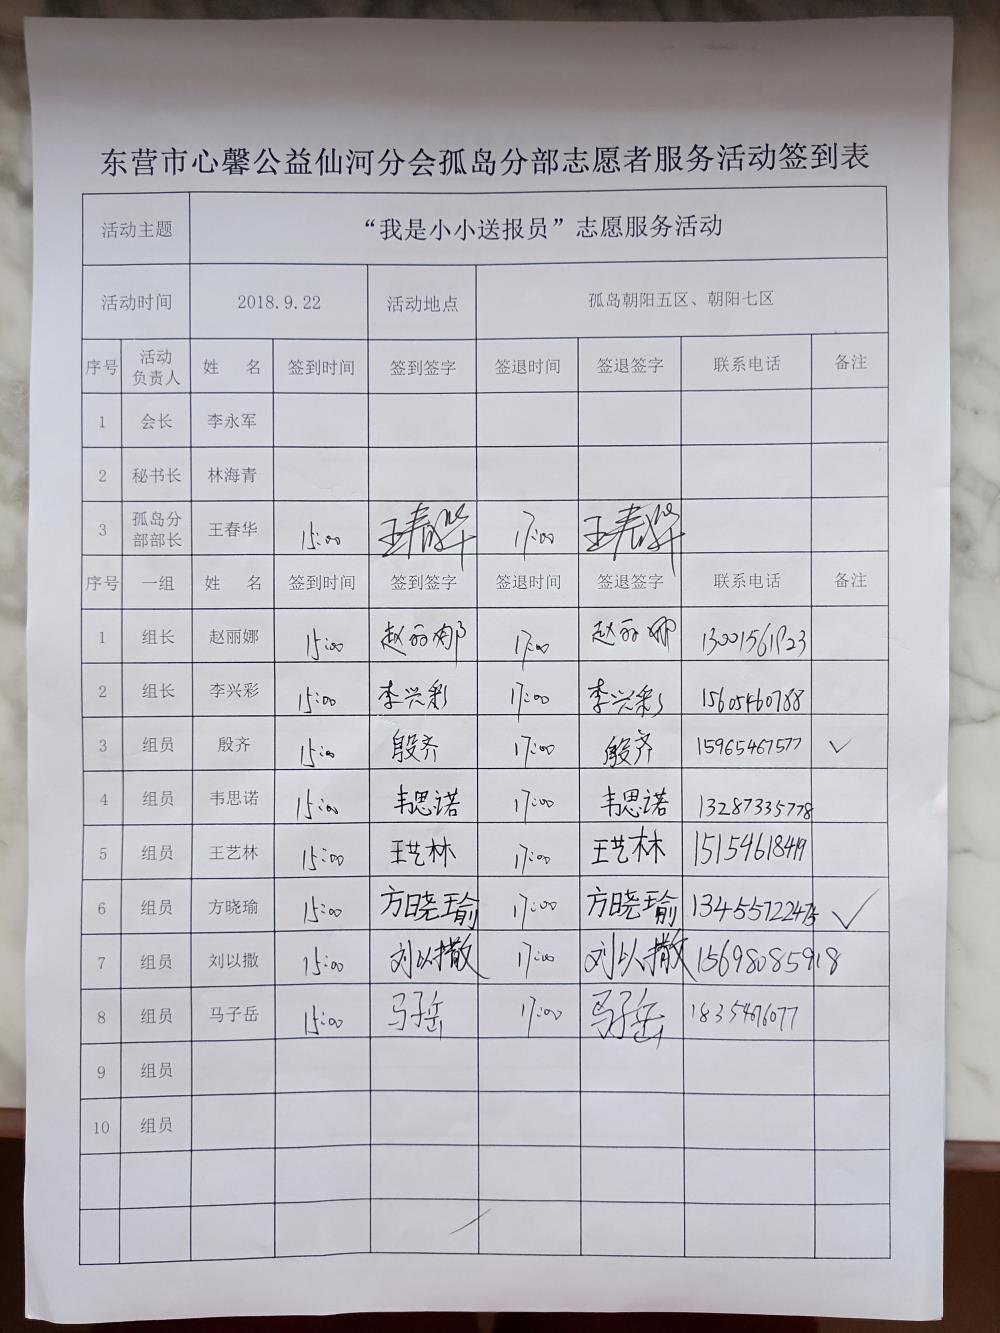 东营市心馨公益仙河分会孤岛分部志愿者服务活动签到表
活动主题 “我是小小送报员”志愿服务活动
活动时间 2018.9.22 活动地点 孤岛朝阳五区、朝阳七区
序号 活动负责人 姓 名 签到时间 签到签字 签退时间 签退签字 联系电话 备注
1 会长 李永军
2 秘书长 林海青
3 孤岛分部部长 王春华 15:00 王春华 17:00 王春华
序号 一组 姓 名 签到时间 签到签字 签退时间 签退签字 联系电话 备注
1 组长 赵丽娜 15:00 赵丽娜 17:00 赵丽娜
2 组长 李兴彩 15:00 李兴彩 17:00 李兴彩 15605460788
3 组员 殷齐 15:00 殷齐 17:00 殷齐 15965467577 ✓
4 组员 韦思诺 15:00 韦思诺 17:00 韦思诺 13287335778
5 组员 王艺林 15:00 王艺林 17:00 王艺林 15154618419
6 组员 方晓瑜 15:00 方晓瑜 17:00 方晓瑜 13455722475 ✓
7 组员 刘以撒 15:00 刘以撒 17:00 刘以撒 15698085918
8 组员 马子岳 15:00 马子岳 17:00 马子岳
9 组员
10 组员